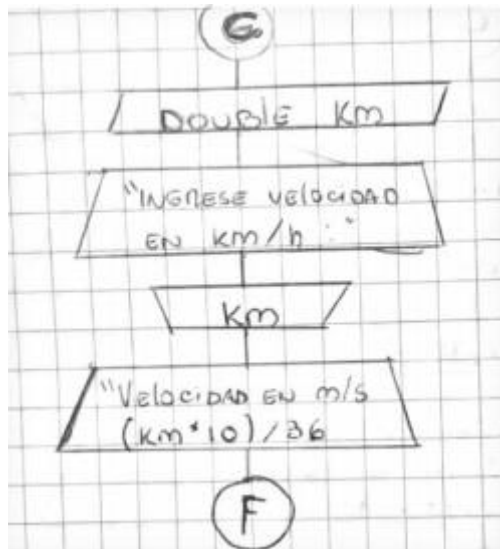 G.
DOUBLE Km
"INGRESE VELOCIDAD
EN Km/h : "
Km
"VELOCIDAD EN m/s
(Km*10)/36
F